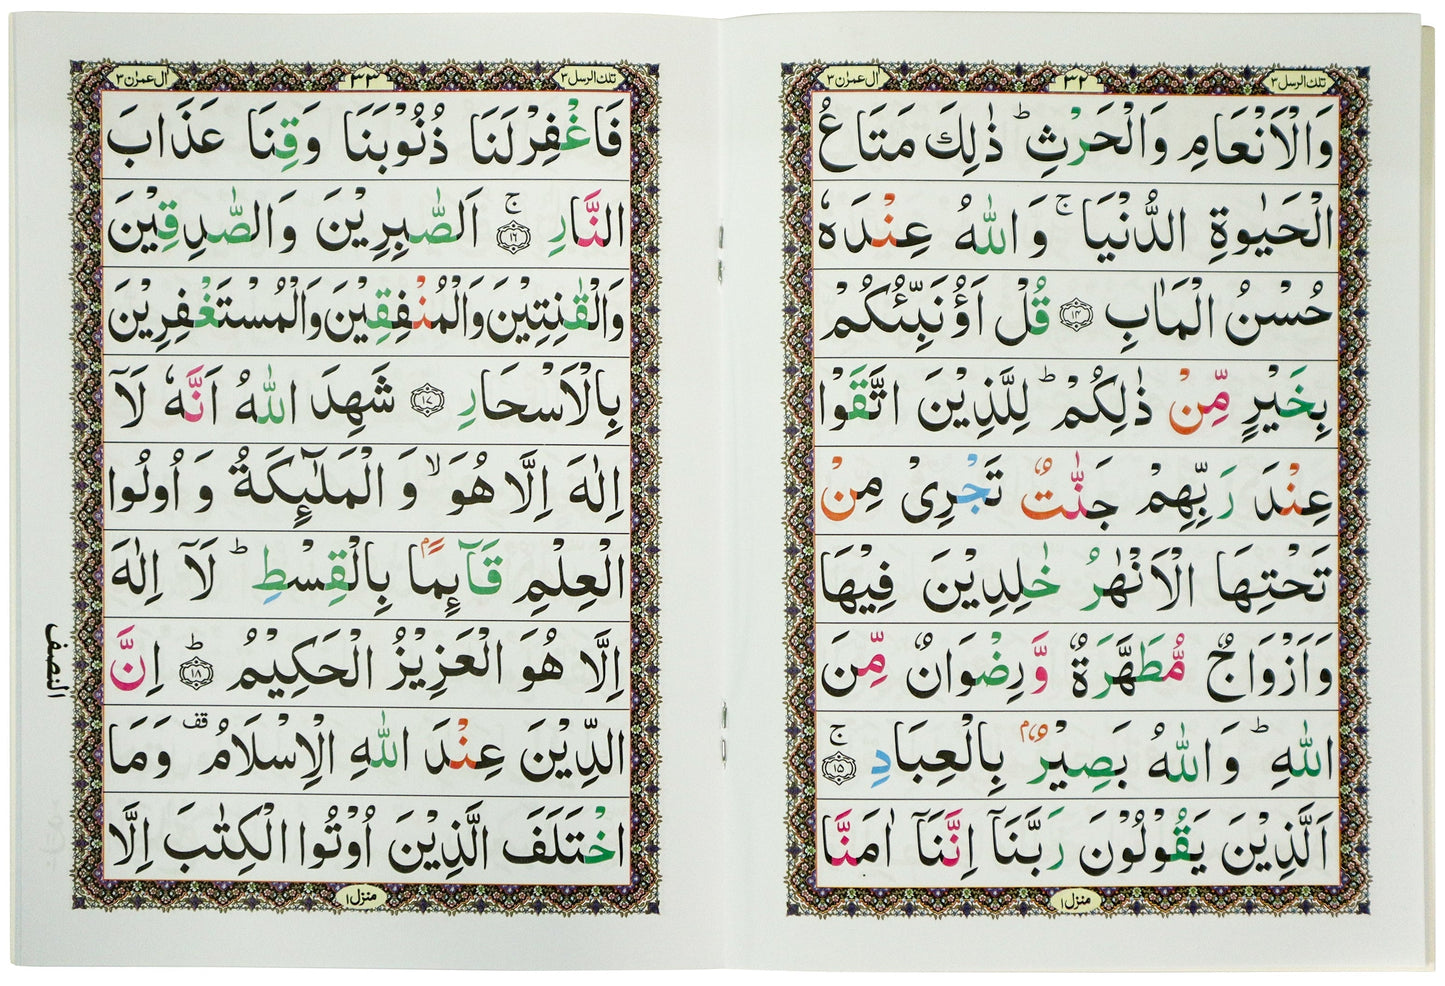 تلك الرسل ٣
٣٢
اٰل عمرٰن ٣
وَالْاَنْعَامِ وَالْحَرْثِ ؕ ذٰلِكَ مَتَاعُ
الْحَيٰوةِ الدُّنْيَا ۚ وَاللّٰهُ عِنْدَهٗ
حُسْنُ الْمَاٰبِ ﴿۱۴﴾ قُلْ اَؤُنَبِّئُكُمْ
بِخَيْرٍ مِّنْ ذٰلِكُمْ ؕ لِلَّذِيْنَ اتَّقَوْا
عِنْدَ رَبِّهِمْ جَنّٰتٌ تَجْرِىْ مِنْ
تَحْتِهَا الْاَنْهٰرُ خٰلِدِيْنَ فِيْهَا
وَاَزْوَاجٌ مُّطَهَّرَةٌ وَّرِضْوَانٌ مِّنَ
اللّٰهِ ؕ وَاللّٰهُ بَصِيْرٌۢ بِالْعِبَادِ ۚ﴿۱۵﴾
اَلَّذِيْنَ يَقُوْلُوْنَ رَبَّنَاۤ اِنَّنَاۤ اٰمَنَّا
منزل ١
تلك الرسل ٣
٣٣
اٰل عمرٰن ٣
فَاغْفِرْ لَنَا ذُنُوْبَنَا وَقِنَا عَذَابَ
النَّارِ ۚ﴿۱۶﴾ اَلصّٰبِرِيْنَ وَالصّٰدِقِيْنَ
وَالْقٰنِتِيْنَ وَالْمُنْفِقِيْنَ وَالْمُسْتَغْفِرِيْنَ
بِالْاَسْحَارِ ﴿۱۷﴾ شَهِدَ اللّٰهُ اَنَّهٗ لَاۤ
اِلٰهَ اِلَّا هُوَ ۙ وَ الْمَلٰٓىِٕكَةُ وَ اُولُوا
الْعِلْمِ قَآىِٕمًاۢ بِالْقِسْطِ ؕ لَاۤ اِلٰهَ
اِلَّا هُوَ الْعَزِيْزُ الْحَكِيْمُ ؕ﴿۱۸﴾ اِنَّ
النصف
الدِّيْنَ عِنْدَ اللّٰهِ الْاِسْلَامُ قف وَمَا
اخْتَلَفَ الَّذِيْنَ اُوْتُوا الْكِتٰبَ اِلَّا
منزل ١